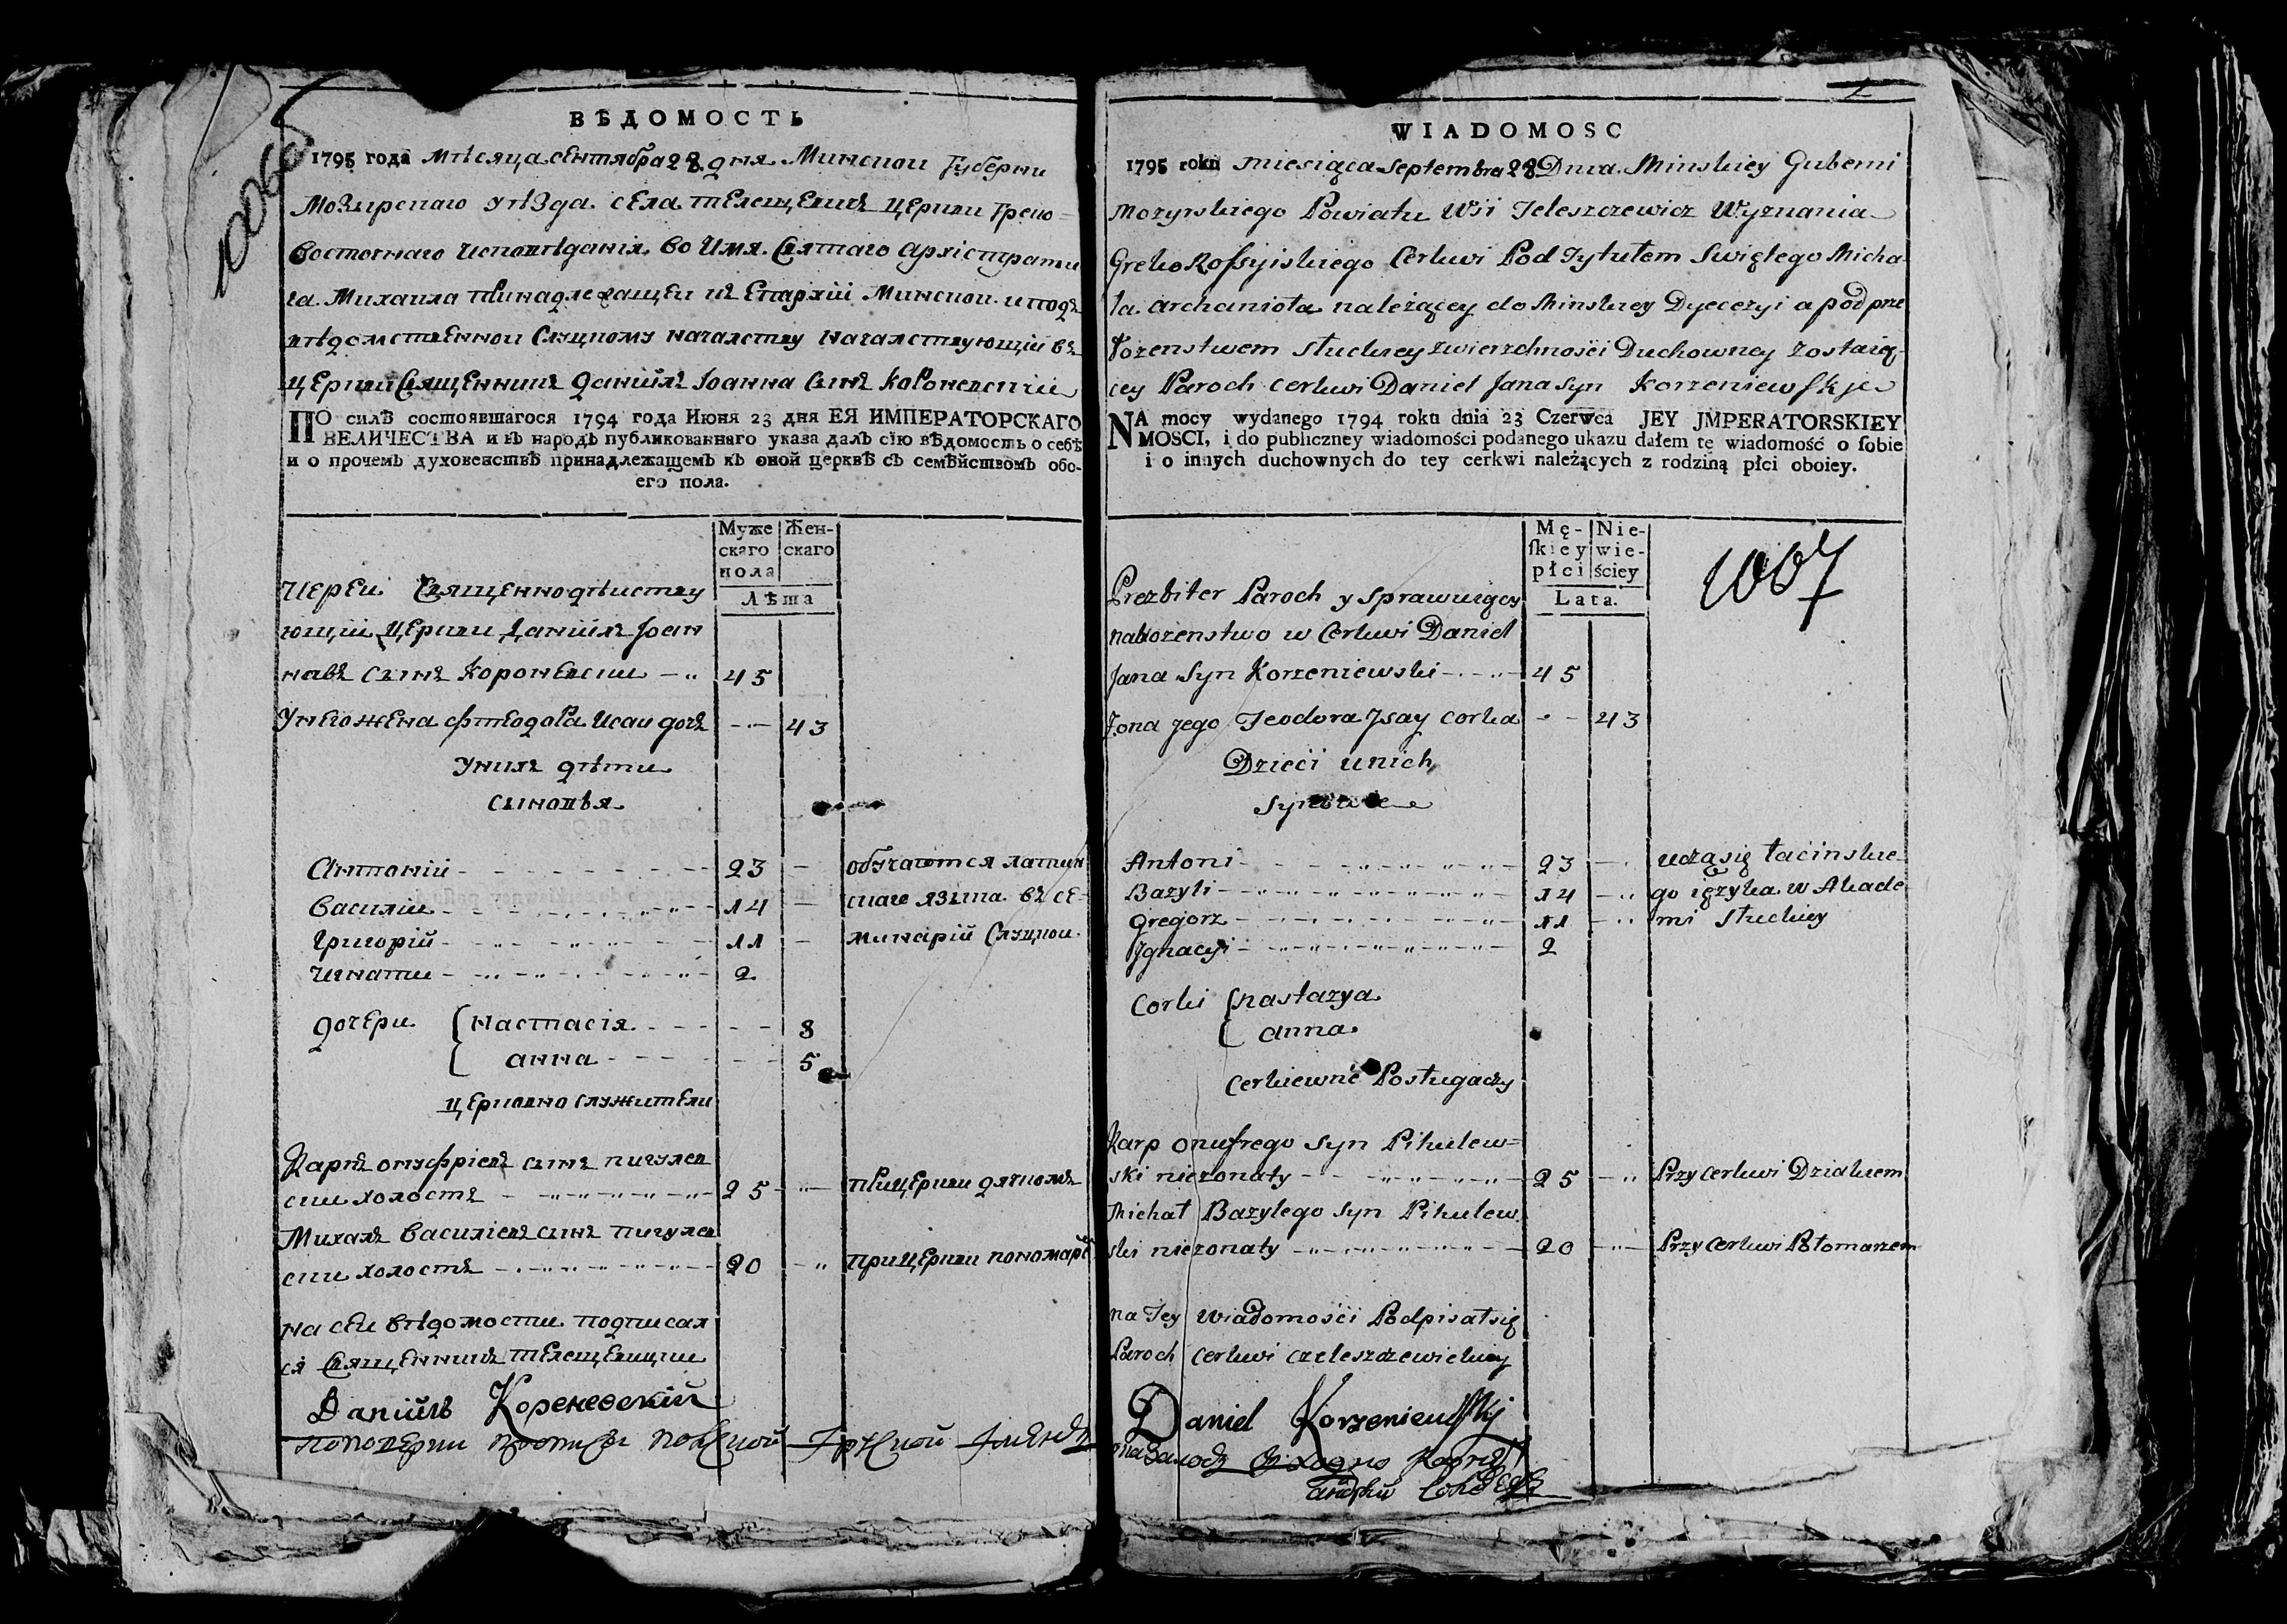 ВѢДОМОСТЬ
1795 года мѣсяца сентября 28 дня Минской Губерни
Мозирскаго уѣзда села телещевичъ церкви греко-
восточнаго исповѣданія во имя Святаго Архистрати
га Михаила принадлежащеи къ Епархіи Минскои и подъ
вѣдомственнои Слуцкому началству началствующій въ
церкви Священникъ Даніилъ Іоанна синъ
ПО силѣ состоявшагося 1794 года Июня 23 дня ЕЯ ИМПЕРАТОРСКАГО
ВЕЛИЧЕСТВА и въ народъ публикованнаго указа далъ сїю вѣдомость о себѣ
и о прочемъ духовенствѣ принадлежащемъ къ оной церквѣ съ семѣйствомъ обо-
его пола.
Муже Жен-
скаго скаго
пола
Лѣта
Иереи Священнодѣиству
ющій церкви Даніилъ Іоан
новъ синъ Короневски 45
У него жена Фтеодора Исаи дочъ 43
У нихъ дѣти
синовья
Антоній 23 обучаются латин
Василіи 14 скаго язика въ се-
Григорій 11 минаріи Слуцкои
Игнати 2
дочери { Настасія 8
{ анна 5
церковно служители
Карпъ онуфріевъ синъ пигулев
ски холостъ 25 прицеркви дячкомъ
Михалъ Василіевъ синъ пигулев
ски холостъ 20 прицеркви пономаръ
на сеи вѣдомости подписал
ся Священникъ телещевицки
Даніилъ Кореневскій
WIADOMOSC
1795 roku miesiąca Septembra 28 Dnia Minskiey Guberni
Mozyrskiego Powiatu Wsi Teleszczewicz Wyznania
GrekoRossyiskiego Cerkwi Pod Tytułem Swiętego Micha
ła archanioła należącey do Minskiey Dyecezyi a pod prze
łożenstwem słuckiey zwierzchności Duchowney zostaią-
cey Paroch cerkwi Daniel Jana syn
NA mocy wydanego 1794 roku dnia 23 Czerwca JEY JMPERATORSKIEY
MOSCI, i do publiczney wiadomości podanego ukazu dałem tę wiadomość o sobie
i o innych duchownych do tey cerkwi należących z rodziną płci oboiey.
Mę- Nie-
skiey wie-
płci ściey
Lata.
1007
Prezbiter Paroch y sprawuiący
nabożenstwo w Cerkwi Daniel
Jana Syn Korzeniewski 45
Żona jego Teodora Jsay corka 43
Dzieci unich
Synowie
Antoni 23 uczą się łacinskie
Bazyli 14 go ięzyka w Akade
Gregorz 11 mi słuckiey
Jgnacyi 2
Corki { nastazya
{ anna
Cerkiewne Posługaczy
Karp onufrego syn Pihulew=
ski nieżonaty 25 Przy cerkwi Dziakiem
Michał Bazylego Syn Pihulew
ski nieżonaty 20 Przy cerkwi Połomarzem
na Tey wiadomości Podpisał się
Paroch cerkwi czeleszczewickiey
Daniel Korzeniewskj